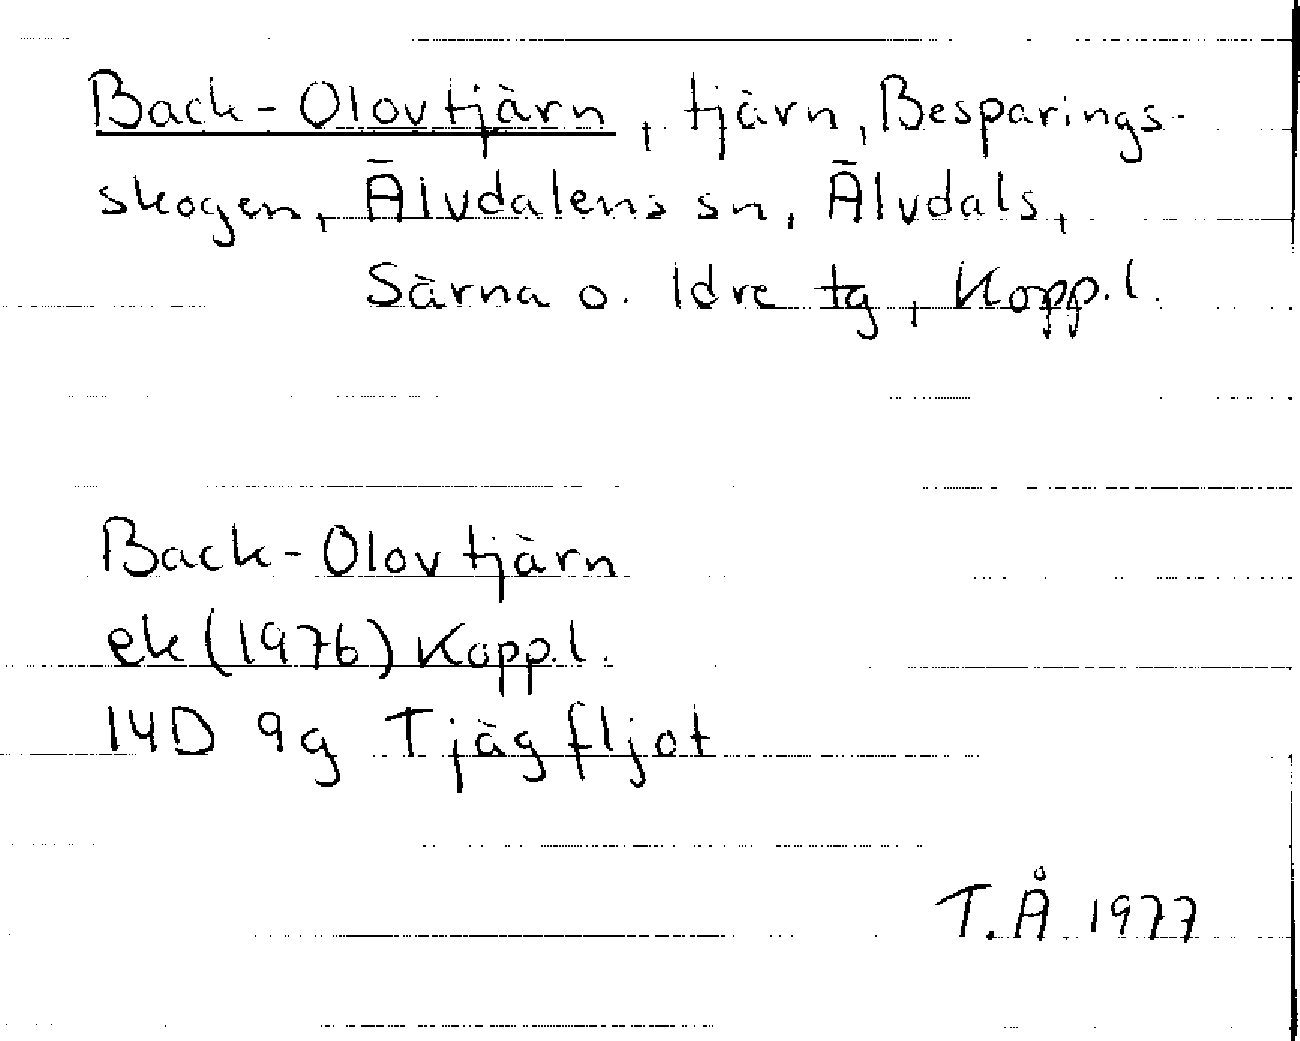 Back-Olovtjärn, tjärn, Besparings-
skogen, Älvdalens sn, Älvdals,
Särna o. Idre tg, Kopp.l.
Back-Olovtjärn
ek (1976) Kopp.l.
14D 9g Tjägfljot
T.Å 1977